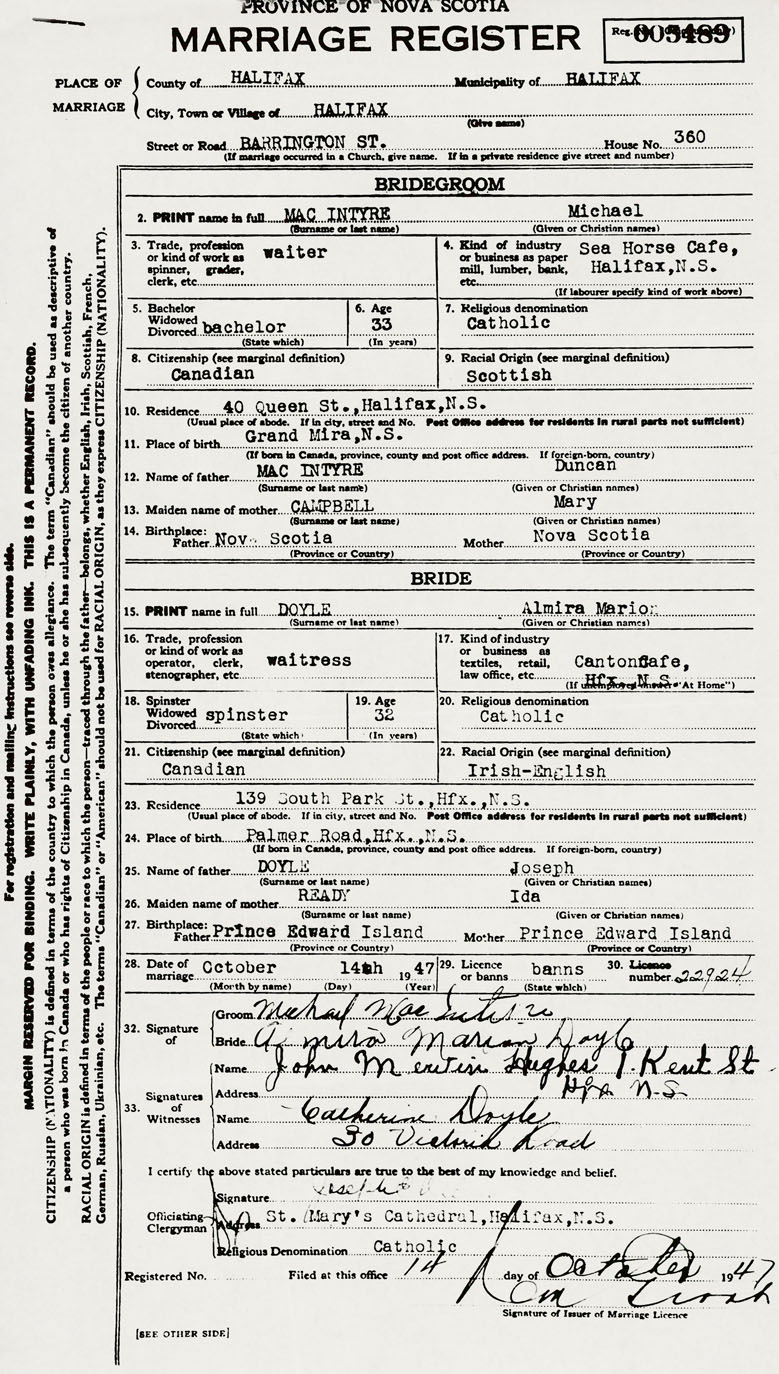 PROVINCE OF NOVA SCOTIA
MARRIAGE REGISTER
Reg. No. 005489
PLACE OF MARRIAGE
County of HALIFAX Municipality of HALIFAX
City, Town or Village of HALIFAX
(Give name)
Street or Road BARRINGTON ST. House No. 360
(If marriage occurred in a Church, give name. If in a private residence give street and number)
BRIDEGROOM
2. PRINT name in full MAC INTYRE Michael
(Surname or last name) (Given or Christian names)
3. Trade, profession or kind of work as spinner, grader, clerk, etc. waiter
4. Kind of industry or business as paper mill, lumber, bank, etc. Sea Horse Cafe, Halifax,N.S.
(If labourer specify kind of work above)
5. Bachelor Widowed Divorced bachelor
(State which)
6. Age 33
(In years)
7. Religious denomination Catholic
8. Citizenship (see marginal definition) Canadian
9. Racial Origin (see marginal definition) Scottish
10. Residence 40 Queen St.,Halifax,N.S.
(Usual place of abode. If in city, street and No. Post Office address for residents in rural parts not sufficient)
11. Place of birth Grand Mira,N.S.
(If born in Canada, province, county and post office address. If foreign-born, country)
12. Name of father MAC INTYRE Duncan
(Surname or last name) (Given or Christian names)
13. Maiden name of mother CAMPBELL Mary
(Surname or last name) (Given or Christian names)
14. Birthplace: Father Nova Scotia Mother Nova Scotia
(Province or Country) (Province or Country)
BRIDE
15. PRINT name in full DOYLE Almira Marion
(Surname or last name) (Given or Christian names)
16. Trade, profession or kind of work as operator, clerk, stenographer, etc. waitress
17. Kind of industry or business as textiles, retail, law office, etc. Canton Cafe, Hfx. N.S.
(If unemployed answer "At Home")
18. Spinster Widowed Divorced spinster
(State which)
19. Age 32
(In years)
20. Religious denomination Catholic
21. Citizenship (see marginal definition) Canadian
22. Racial Origin (see marginal definition) Irish-English
23. Residence 139 South Park St.,Hfx.,N.S.
(Usual place of abode. If in city, street and No. Post Office address for residents in rural parts not sufficient)
24. Place of birth Palmer Road,Hfx.,N.S.
(If born in Canada, province, county and post office address. If foreign-born, country)
25. Name of father DOYLE Joseph
(Surname or last name) (Given or Christian names)
26. Maiden name of mother READY Ida
(Surname or last name) (Given or Christian names)
27. Birthplace: Father Prince Edward Island Mother Prince Edward Island
(Province or Country) (Province or Country)
28. Date of marriage October 14th 1947
(Month by name) (Day) (Year)
29. Licence or banns banns
(State which)
30. Licence number 22924
32. Signature of
Groom Michael MacIntyre
Bride Almira Marian Doyle
33. Signatures of Witnesses
Name John Mervin Hughes 1 Kent St
Address Hfx N.S.
Name Catherine Doyle
Address 30 Victoria Road
I certify the above stated particulars are true to the best of my knowledge and belief.
Officiating Clergyman
Signature Joseph
Address St. Mary's Cathedral,Halifax,N.S.
Religious Denomination Catholic
Registered No. Filed at this office 14 day of October 1947
Signature of Issuer of Marriage Licence
[SEE OTHER SIDE]
For registration and mailing instructions see reverse side.
MARGIN RESERVED FOR BINDING. WRITE PLAINLY, WITH UNFADING INK. THIS IS A PERMANENT RECORD.
CITIZENSHIP (NATIONALITY) is defined in terms of the country to which the person owes allegiance. The term "Canadian" should be used as descriptive of
a person who was born in Canada or who has rights of Citizenship in Canada, unless he or she has subsequently become the citizen of another country.
RACIAL ORIGIN is defined in terms of the people or race to which the person—traced through the father—belongs, whether English, Irish, Scottish, French,
German, Russian, Ukrainian, etc. The terms "Canadian" or "American" should not be used for RACIAL ORIGIN, as they express CITIZENSHIP (NATIONALITY).